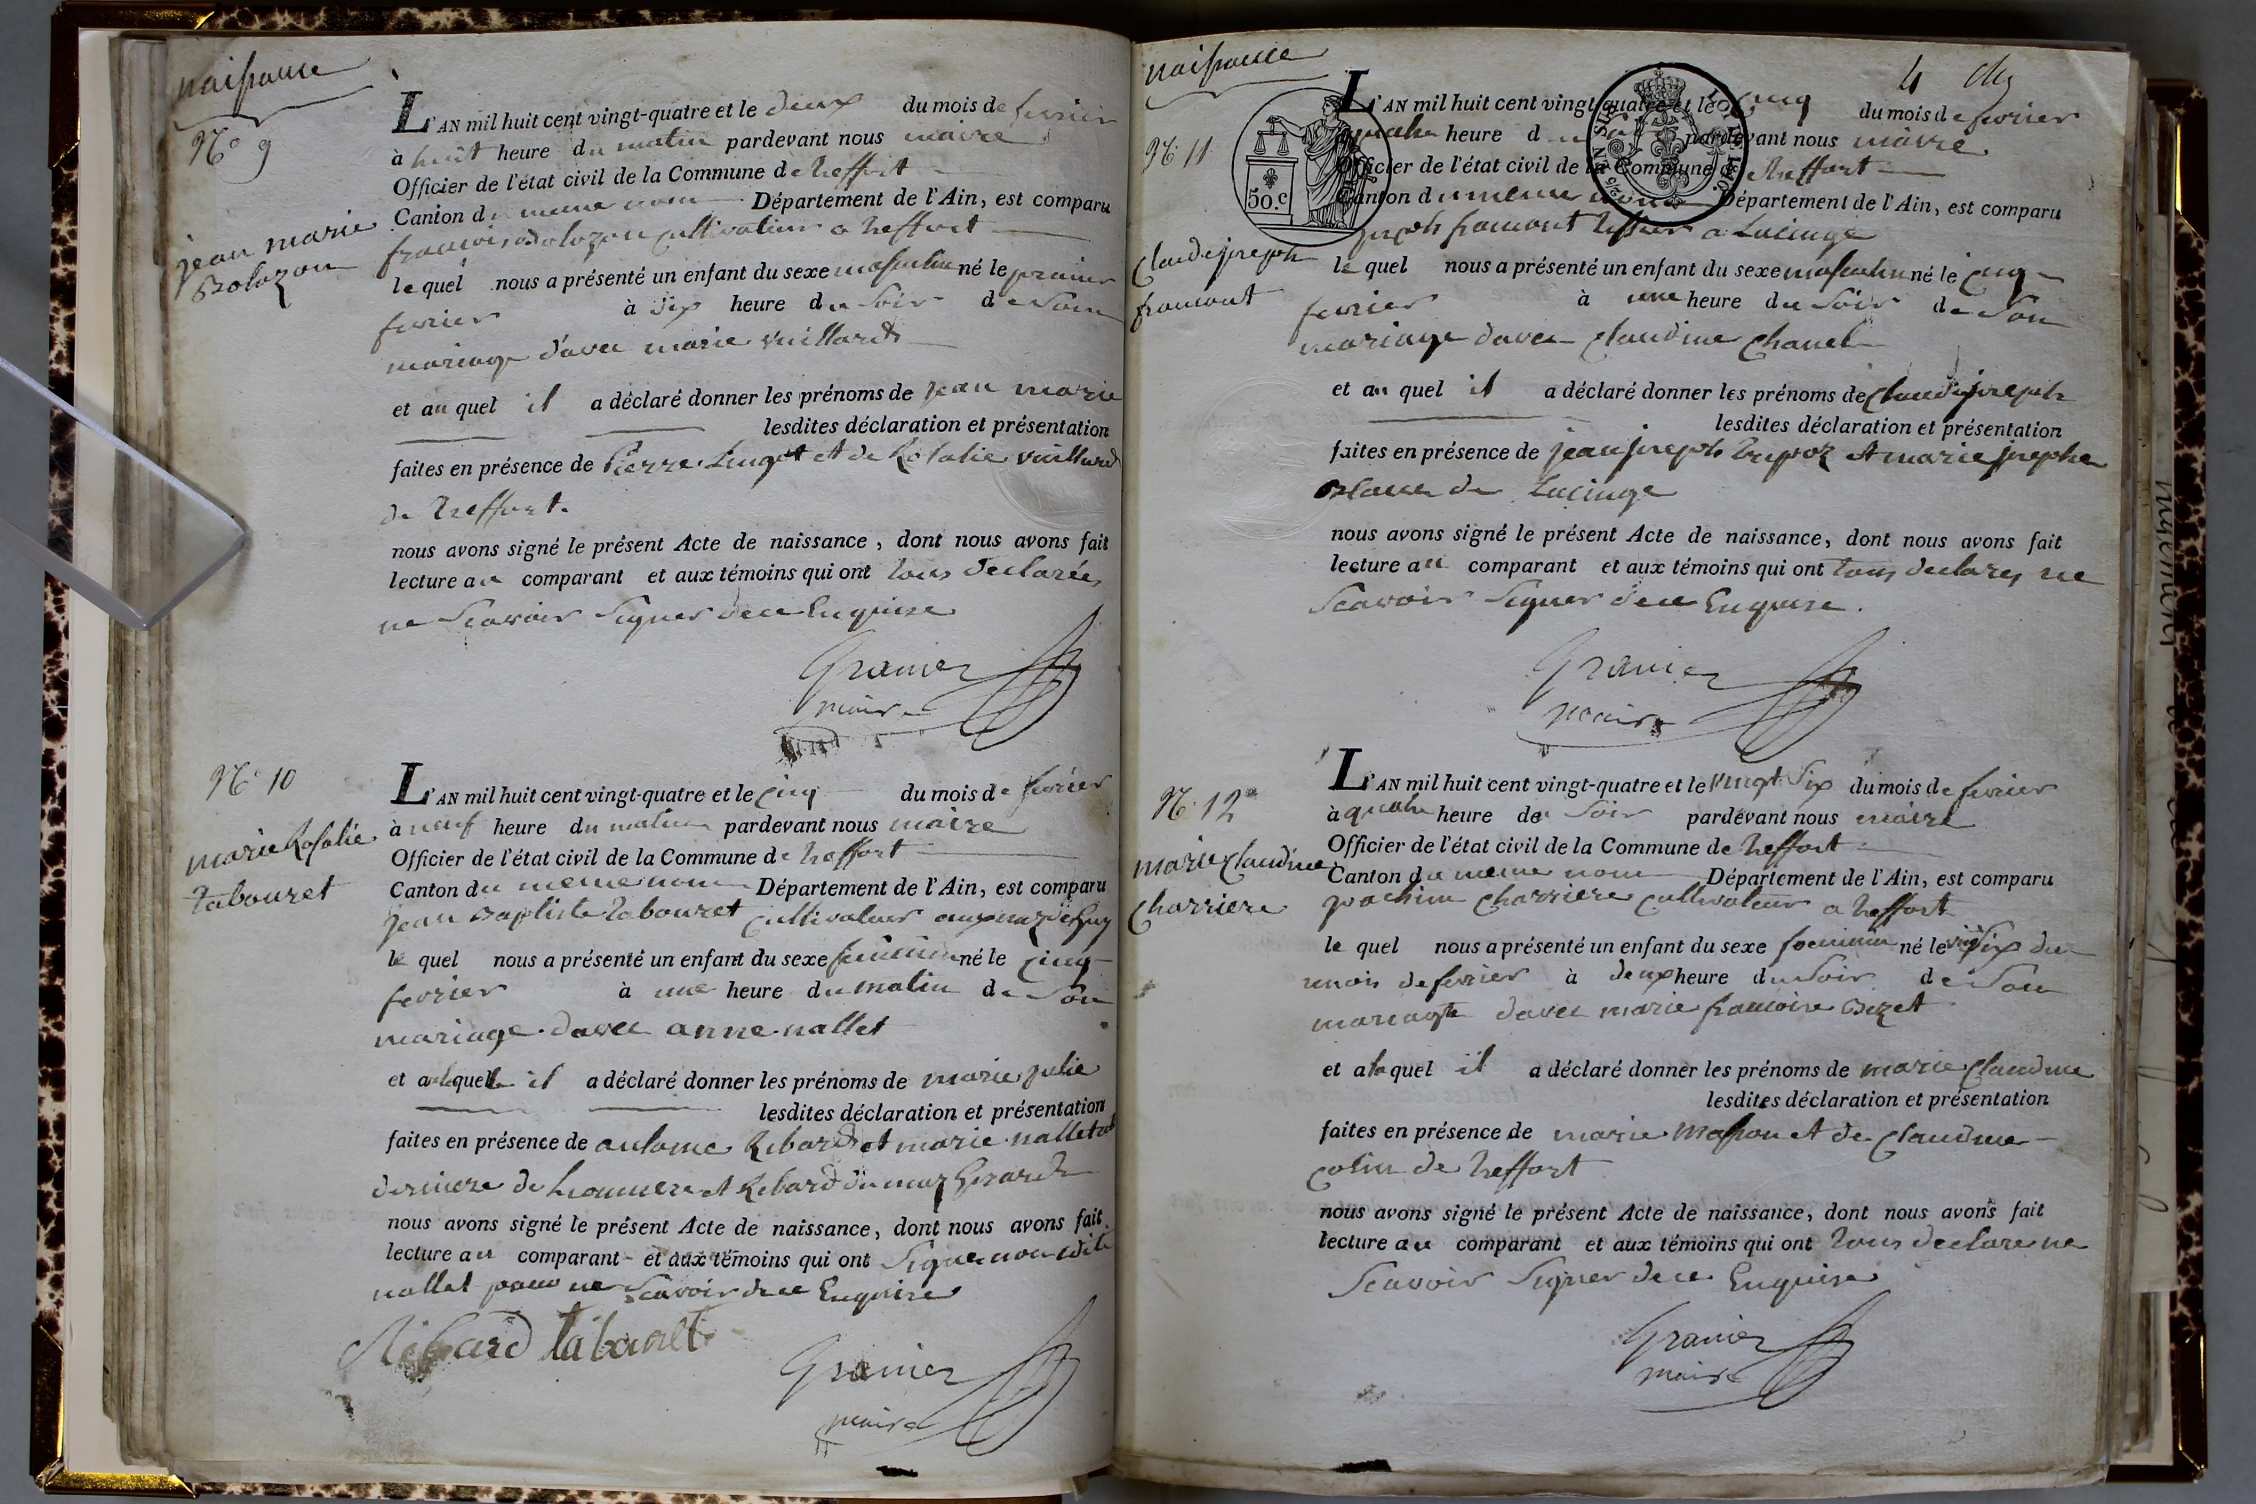 naissance
N.º 9
jean marie
Bolozon
L'AN mil huit cent vingt-quatre et le deux du mois de fevrier
à huit heure du matin pardevant nous maire
Officier de l'état civil de la Commune de treffort
Canton du meme nom Département de l'Ain, est comparu
francois Bolozon cultivateur a treffort
le quel nous a présenté un enfant du sexe masculin né le premier
fevrier à dix heure du soir de son
mariage d'avec marie vuillard
et au quel il a déclaré donner les prénoms de jean marie
lesdites déclaration et présentation
faites en présence de Pierre et de Rosalie vuillard
de treffort.
nous avons signé le présent Acte de naissance, dont nous avons fait
lecture au comparant et aux témoins qui ont tous declarés
ne scavoir signer de ce Enquise
Granier
maire
N.º 10
marie Rosalie
tabouret
L'AN mil huit cent vingt-quatre et le cinq du mois de fevrier
à neuf heure du matin pardevant nous maire
Officier de l'état civil de la Commune de treffort
Canton du meme nom Département de l'Ain, est comparu
jean Baptiste tabouret cultivateur
le quel nous a présenté un enfant du sexe feminin né le cinq
fevrier à une heure du matin de son
mariage d'avec anne nallet
et a laquelle il a déclaré donner les prénoms de marie julie
lesdites déclaration et présentation
faites en présence de antoine Ribard et marie nallet
derniere de et Ribard du
nous avons signé le présent Acte de naissance, dont nous avons fait
lecture au comparant et aux témoins qui ont signe non
nallet pour ne scavoir de ce Enquise
Ribard tabouret
Granier
maire
naissance
4
N.º 11
claude joseph
framont
50.c
L'AN mil huit cent vingt-quatre et le cinq du mois de fevrier
à quatre heure du pardevant nous maire
Officier de l'état civil de la Commune de treffort
Canton du meme nom Département de l'Ain, est comparu
joseph framont tissier a Lucinge
le quel nous a présenté un enfant du sexe masculin né le cinq
fevrier à une heure du soir de son
mariage d'avec claudine chanel
et au quel il a déclaré donner les prénoms de claude joseph
lesdites déclaration et présentation
faites en présence de jean joseph et marie josephe
de Lucinge
nous avons signé le présent Acte de naissance, dont nous avons fait
lecture au comparant et aux témoins qui ont tous declarés ne
scavoir signer de ce Enquise.
Granier
maire
N.º 12
marie claudine
charriere
L'AN mil huit cent vingt-quatre et le vingt six du mois de fevrier
à quatre heure de soir pardevant nous maire
Officier de l'état civil de la Commune de treffort
Canton du meme nom Département de l'Ain, est comparu
joachim charriere cultivateur a treffort
le quel nous a présenté un enfant du sexe foeminin né le vingt six du
mois de fevrier à deux heure du soir de son
mariage d'avec marie francoise Buzet
et a la quel il a déclaré donner les prénoms de marie claudine
lesdites déclaration et présentation
faites en présence de marie Masson et de claudine
colin de treffort
nous avons signé le présent Acte de naissance, dont nous avons fait
lecture au comparant et aux témoins qui ont tous declare ne
scavoir signer de ce Enquise
Granier
maire